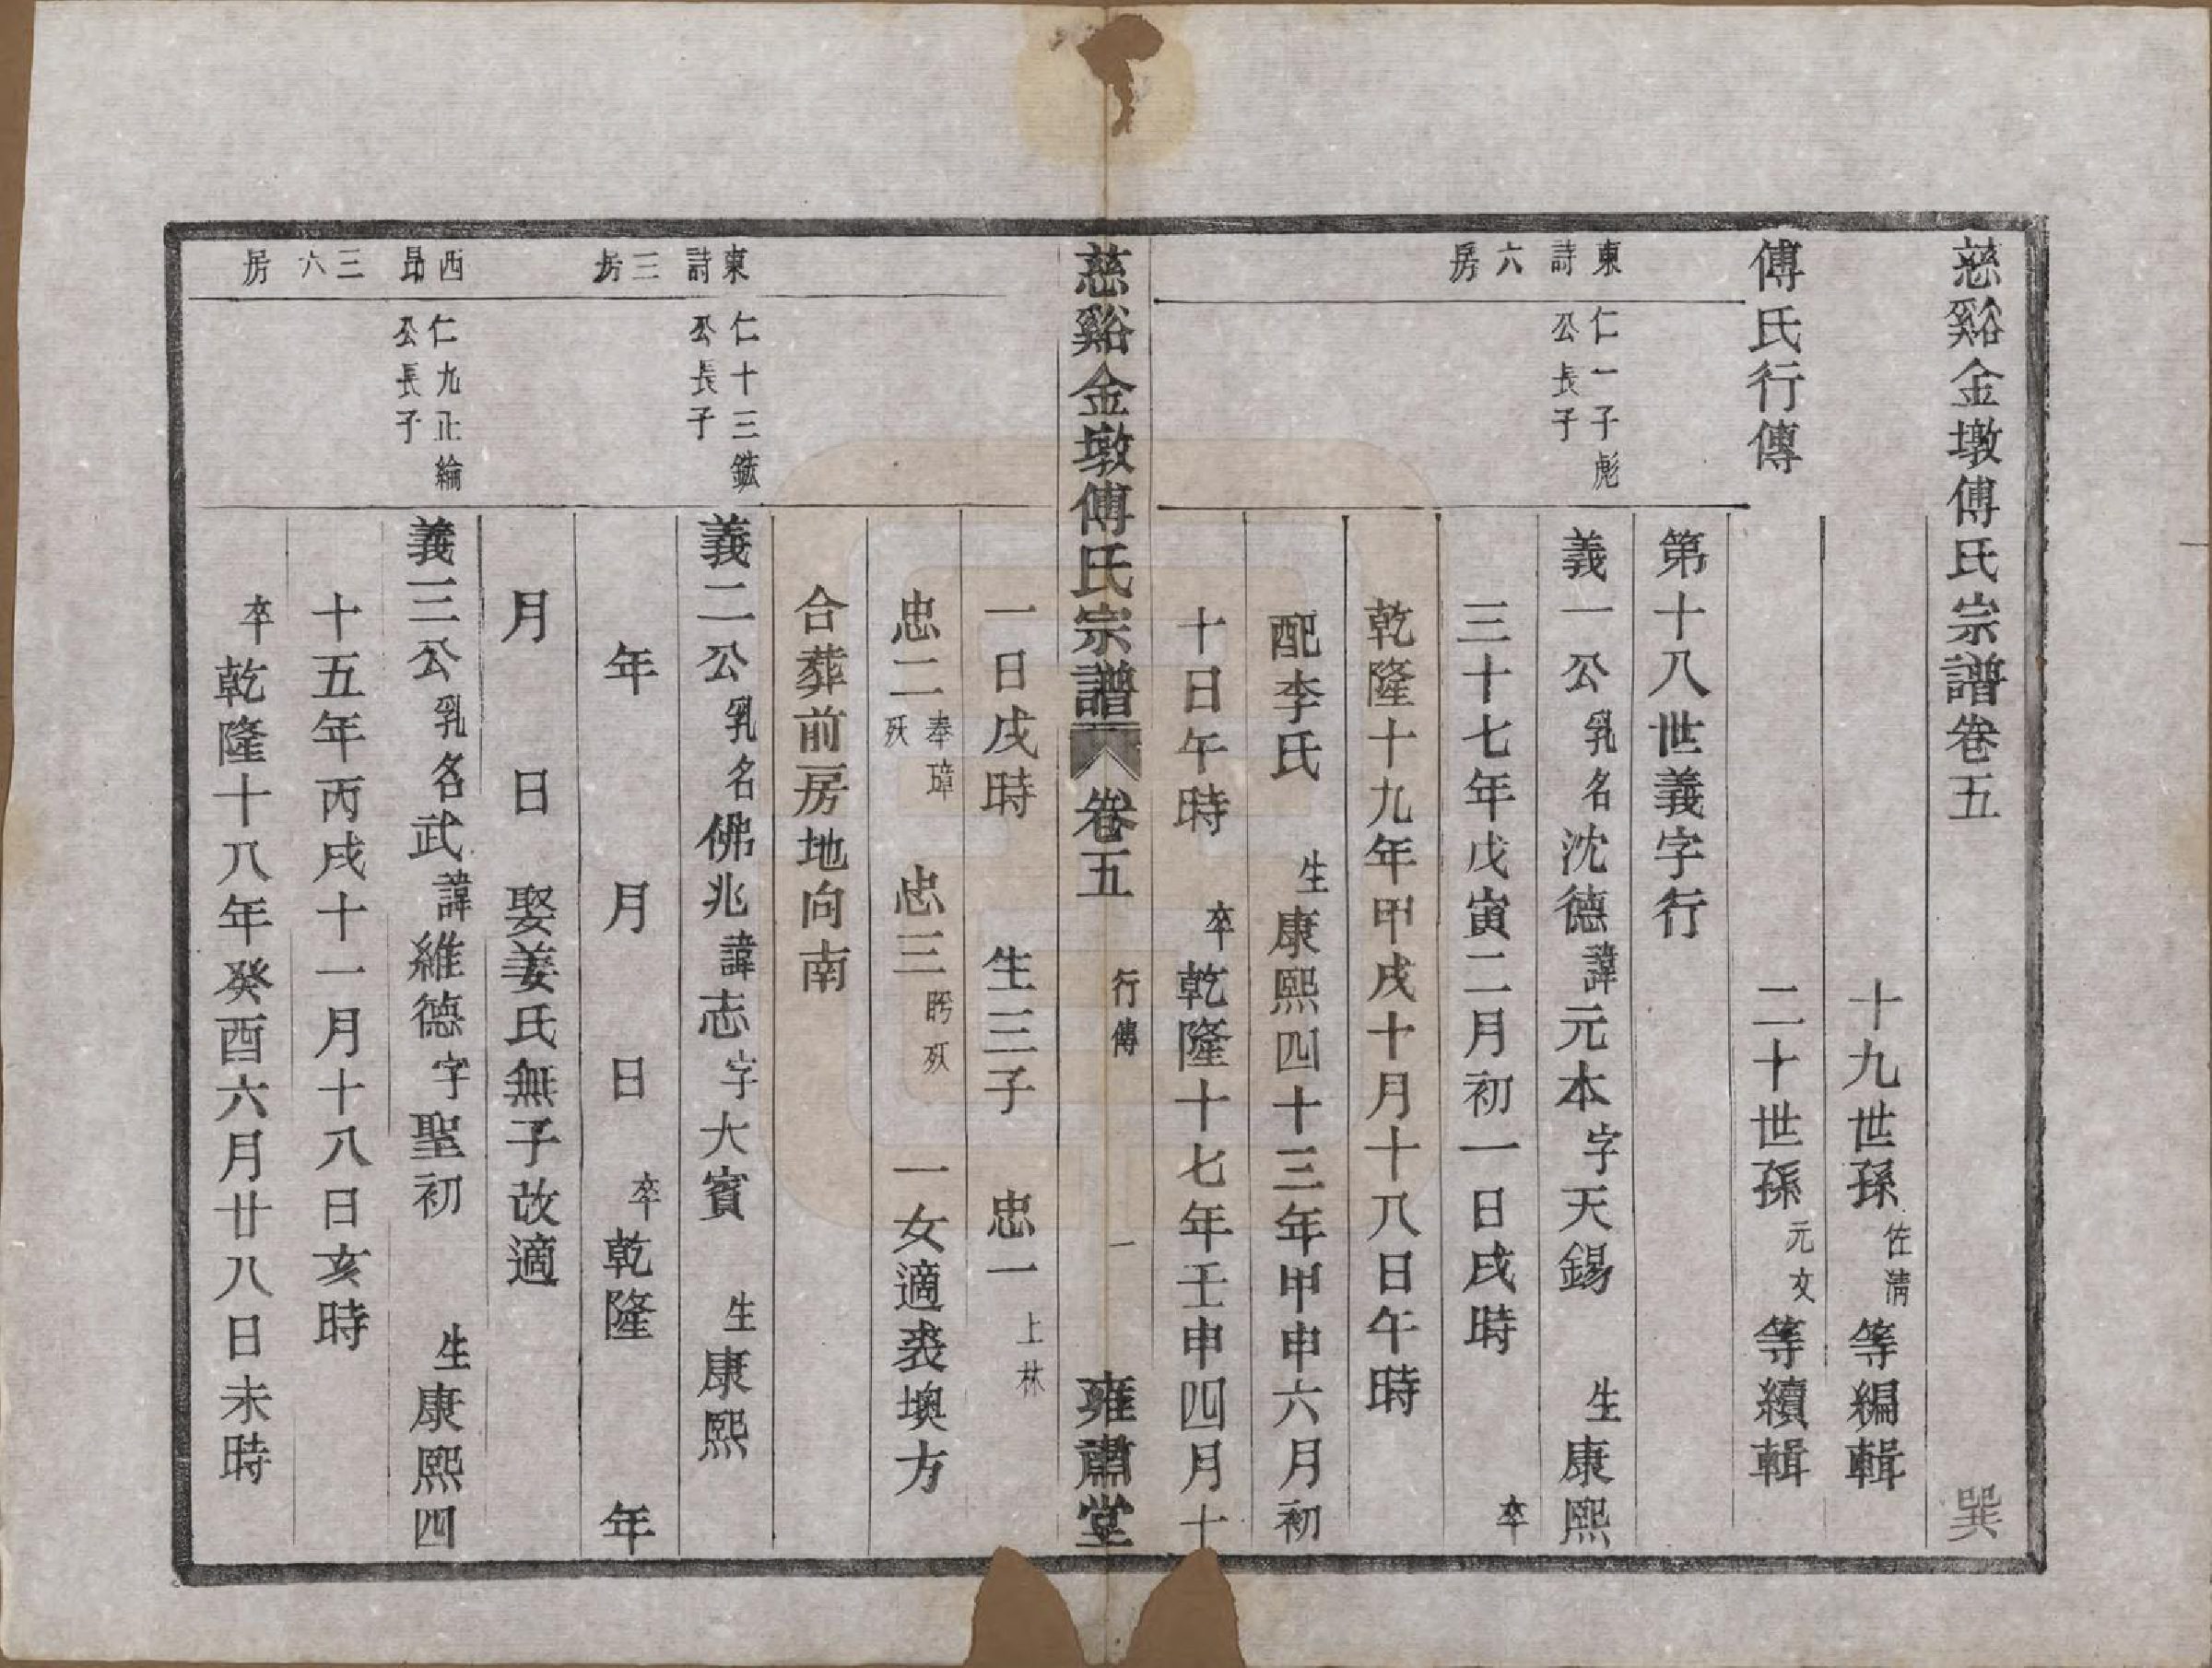 慈谿金墩傅氏宗譜卷五 巽
十九世孫佐清等編輯
傅氏行傳
二十世孫元文等續輯
第十八世義字行
東詩六房
仁一子彪
公長子
義一公乳名沈德諱元本字天錫 生康熙
三十七年戊寅二月初一日戌時 卒
乾隆十九年甲戌十月十八日午時
配李氏 生康熙四十三年甲申六月初
十日午時 卒乾隆十七年壬申四月十
慈谿金墩傅氏宗譜 卷五 行傳 一 雍肅堂
一日戌時 生三子 忠一上林
忠二奉璋殀 忠三殀 一女適裘墺方
合葬前房地向南
東詩三房
仁十三鋐
公長子
義二公乳名佛兆諱志字大賓 生康熙
年 月 日 卒乾隆 年
月 日 娶姜氏無子改適
西昂三六房
仁九正綸
公長子
義三公乳名武諱維德字聖初 生康熙四
十五年丙戌十一月十八日亥時
卒乾隆十八年癸酉六月廿八日未時